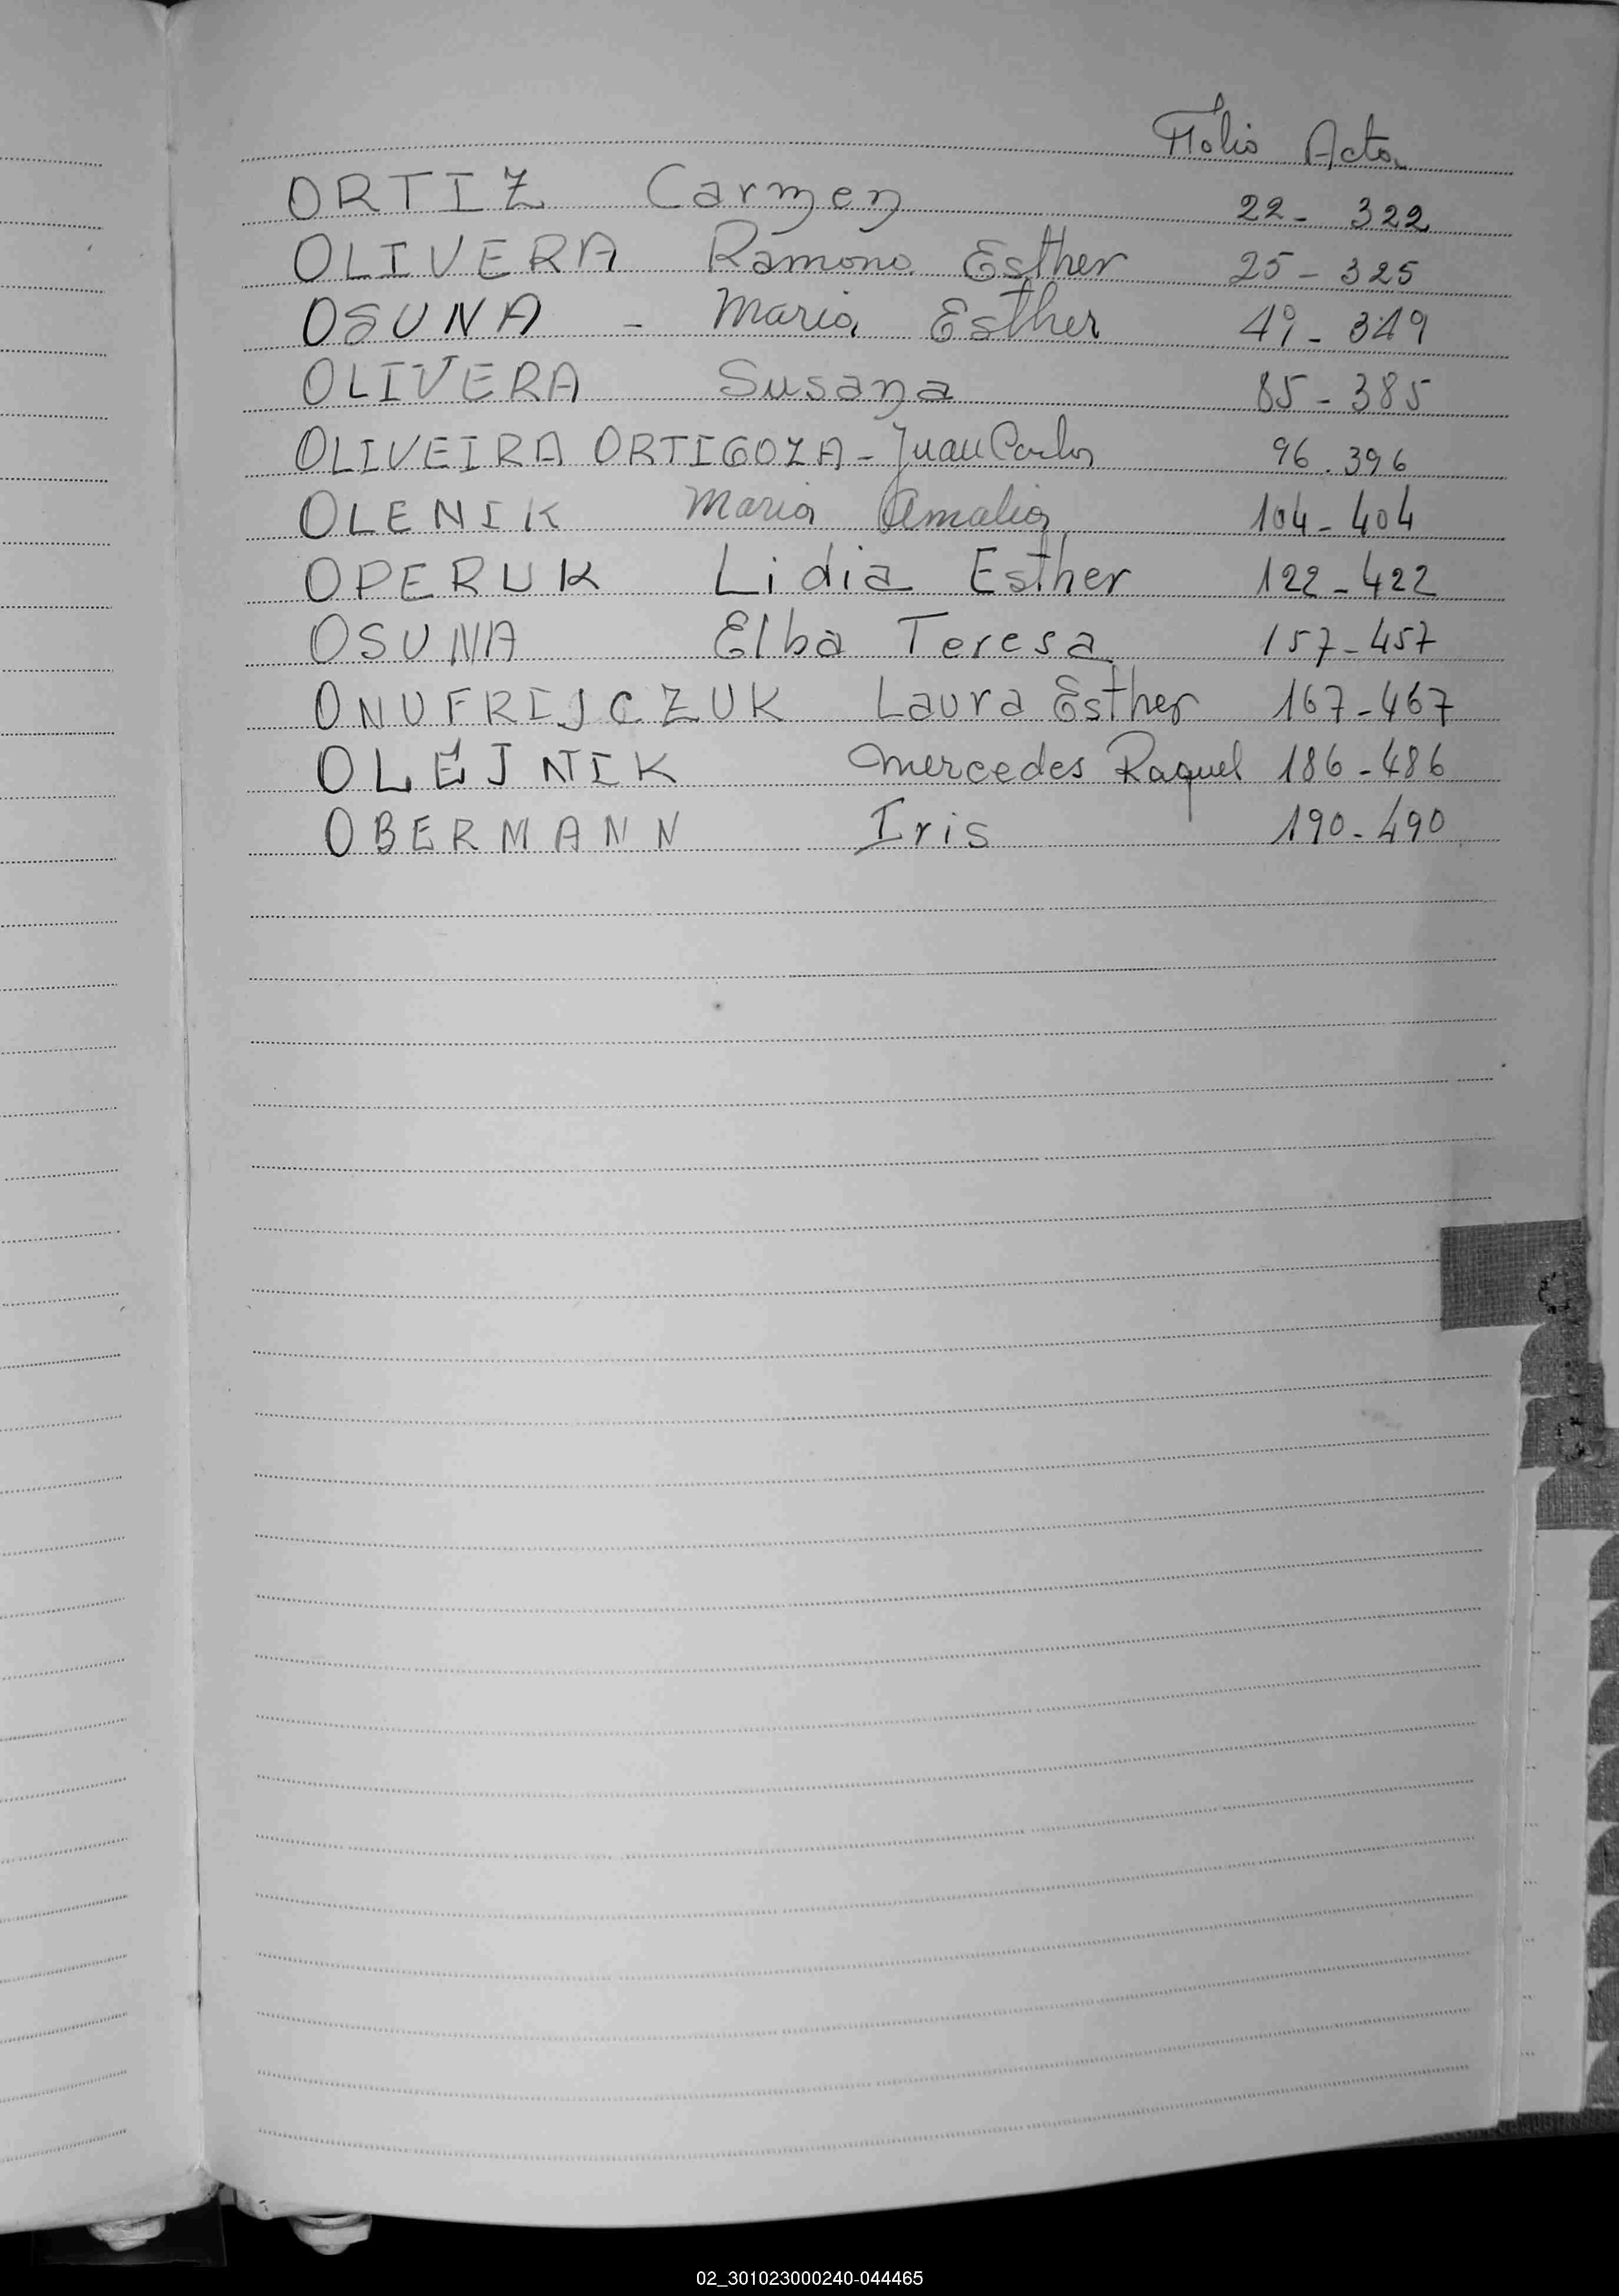 Folio Acta
ORTIZ Carmen 22- 322
OLIVERA Ramona Esther 25- 325
OSUNA - Maria Esther 49- 349
OLIVERA Susana 85- 385
OLIVEIRA ORTIGOZA - Juan Carlos 96. 396
OLENIK Maria Amalia 104- 404
OPERUK Lidia Esther 122- 422
OSUNA Elba Teresa 157- 457
ONUFRIJCZUK Laura Esther 167- 467
OLEJNIK Mercedes Raquel 186- 486
OBERMANN Iris 190- 490
02_301023000240-044465